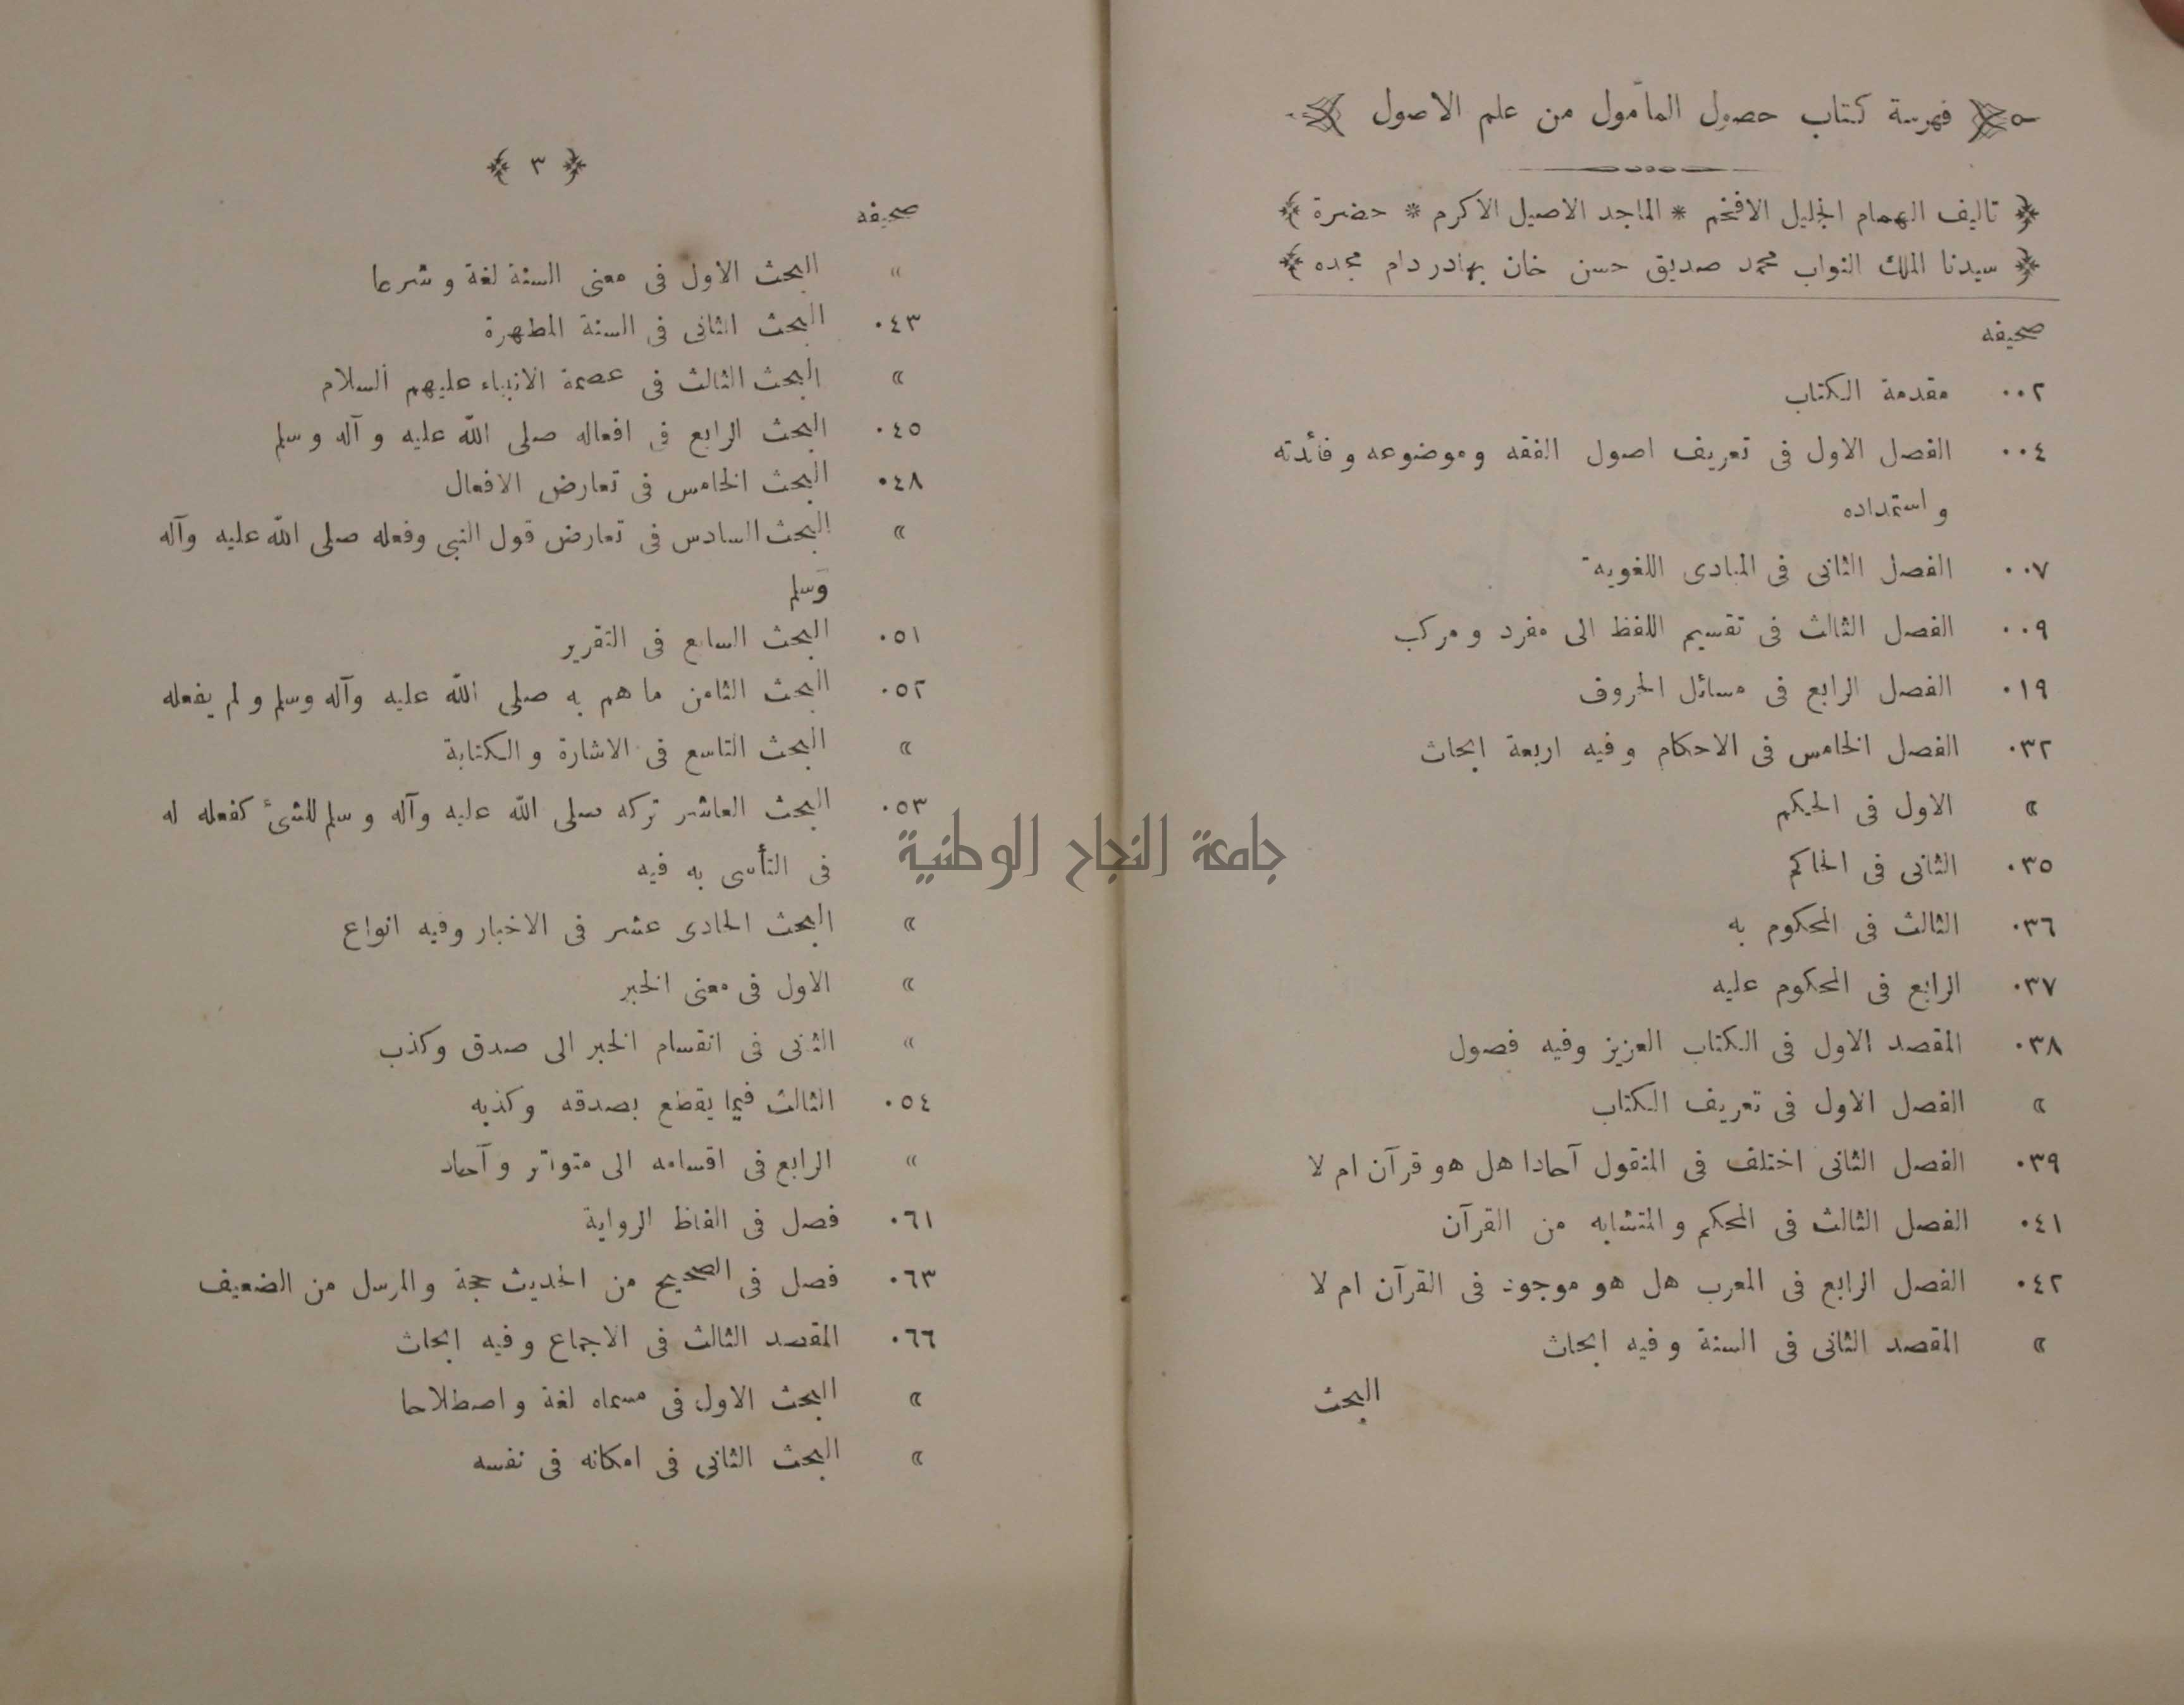 فهرسة كتاب حصول المأمول من علم الاصول
﴿ تاليف الهمام الجليل الافخم * الماجد الاصيل الاكرم * حضرة ﴾
﴿ سيدنا الملك النواب محمد صديق حسن خان بهادر دام مجده ﴾
صحيفه
٠٠٢ مقدمة الكتاب
٠٠٤ الفصل الاول فى تعريف اصول الفقه وموضوعه وفائدته
واستمداده
٠٠٧ الفصل الثانى فى المبادى اللغوية
٠٠٩ الفصل الثالث فى تقسيم اللفظ الى مفرد ومركب
٠١٩ الفصل الرابع فى مسائل الحروف
٠٣٢ الفصل الخامس فى الاحكام وفيه اربعة ابحاث
» الاول فى الحكم
٠٣٥ الثانى فى الحاكم
٠٣٦ الثالث فى المحكوم به
٠٣٧ الرابع فى المحكوم عليه
٠٣٨ المقصد الاول فى الكتاب العزيز وفيه فصول
» الفصل الاول فى تعريف الكتاب
٠٣٩ الفصل الثانى اختلف فى المنقول آحادا هل هو قرآن ام لا
٠٤١ الفصل الثالث فى المحكم والمتشابه من القرآن
٠٤٢ الفصل الرابع فى المعرب هل هو موجود فى القرآن ام لا
» المقصد الثانى فى السنة وفيه ابحاث
البحث
﴿ ٣ ﴾
صحيفه
» البحث الاول فى معنى السنة لغة وشرعا
٠٤٣ البحث الثانى فى السنة المطهرة
» البحث الثالث فى عصمة الانبياء عليهم السلام
٠٤٥ البحث الرابع فى افعاله صلى الله عليه وآله وسلم
٠٤٨ البحث الخامس فى تعارض الافعال
» البحث السادس فى تعارض قول النبى وفعله صلى الله عليه وآله
وسلم
٠٥١ البحث السابع فى التقرير
٠٥٢ البحث الثامن ما هم به صلى الله عليه وآله وسلم ولم يفعله
» البحث التاسع فى الاشارة والكتابة
٠٥٣ البحث العاشر تركه صلى الله عليه وآله وسلم للشئ كفعله له
فى التأسى به فيه
» البحث الحادى عشر فى الاخبار وفيه انواع
» الاول فى معنى الخبر
» الثانى فى انقسام الخبر الى صدق وكذب
٠٥٤ الثالث فيما يقطع بصدقه وكذبه
» الرابع فى اقسامه الى متواتر وآحاد
٠٦١ فصل فى الفاظ الرواية
٠٦٣ فصل فى الصحيح من الحديث حجة والمرسل من الضعيف
٠٦٦ المقصد الثالث فى الاجماع وفيه ابحاث
» البحث الاول فى مسماه لغة واصطلاحا
» البحث الثانى فى امكانه فى نفسه
جامعة النجاح الوطنية